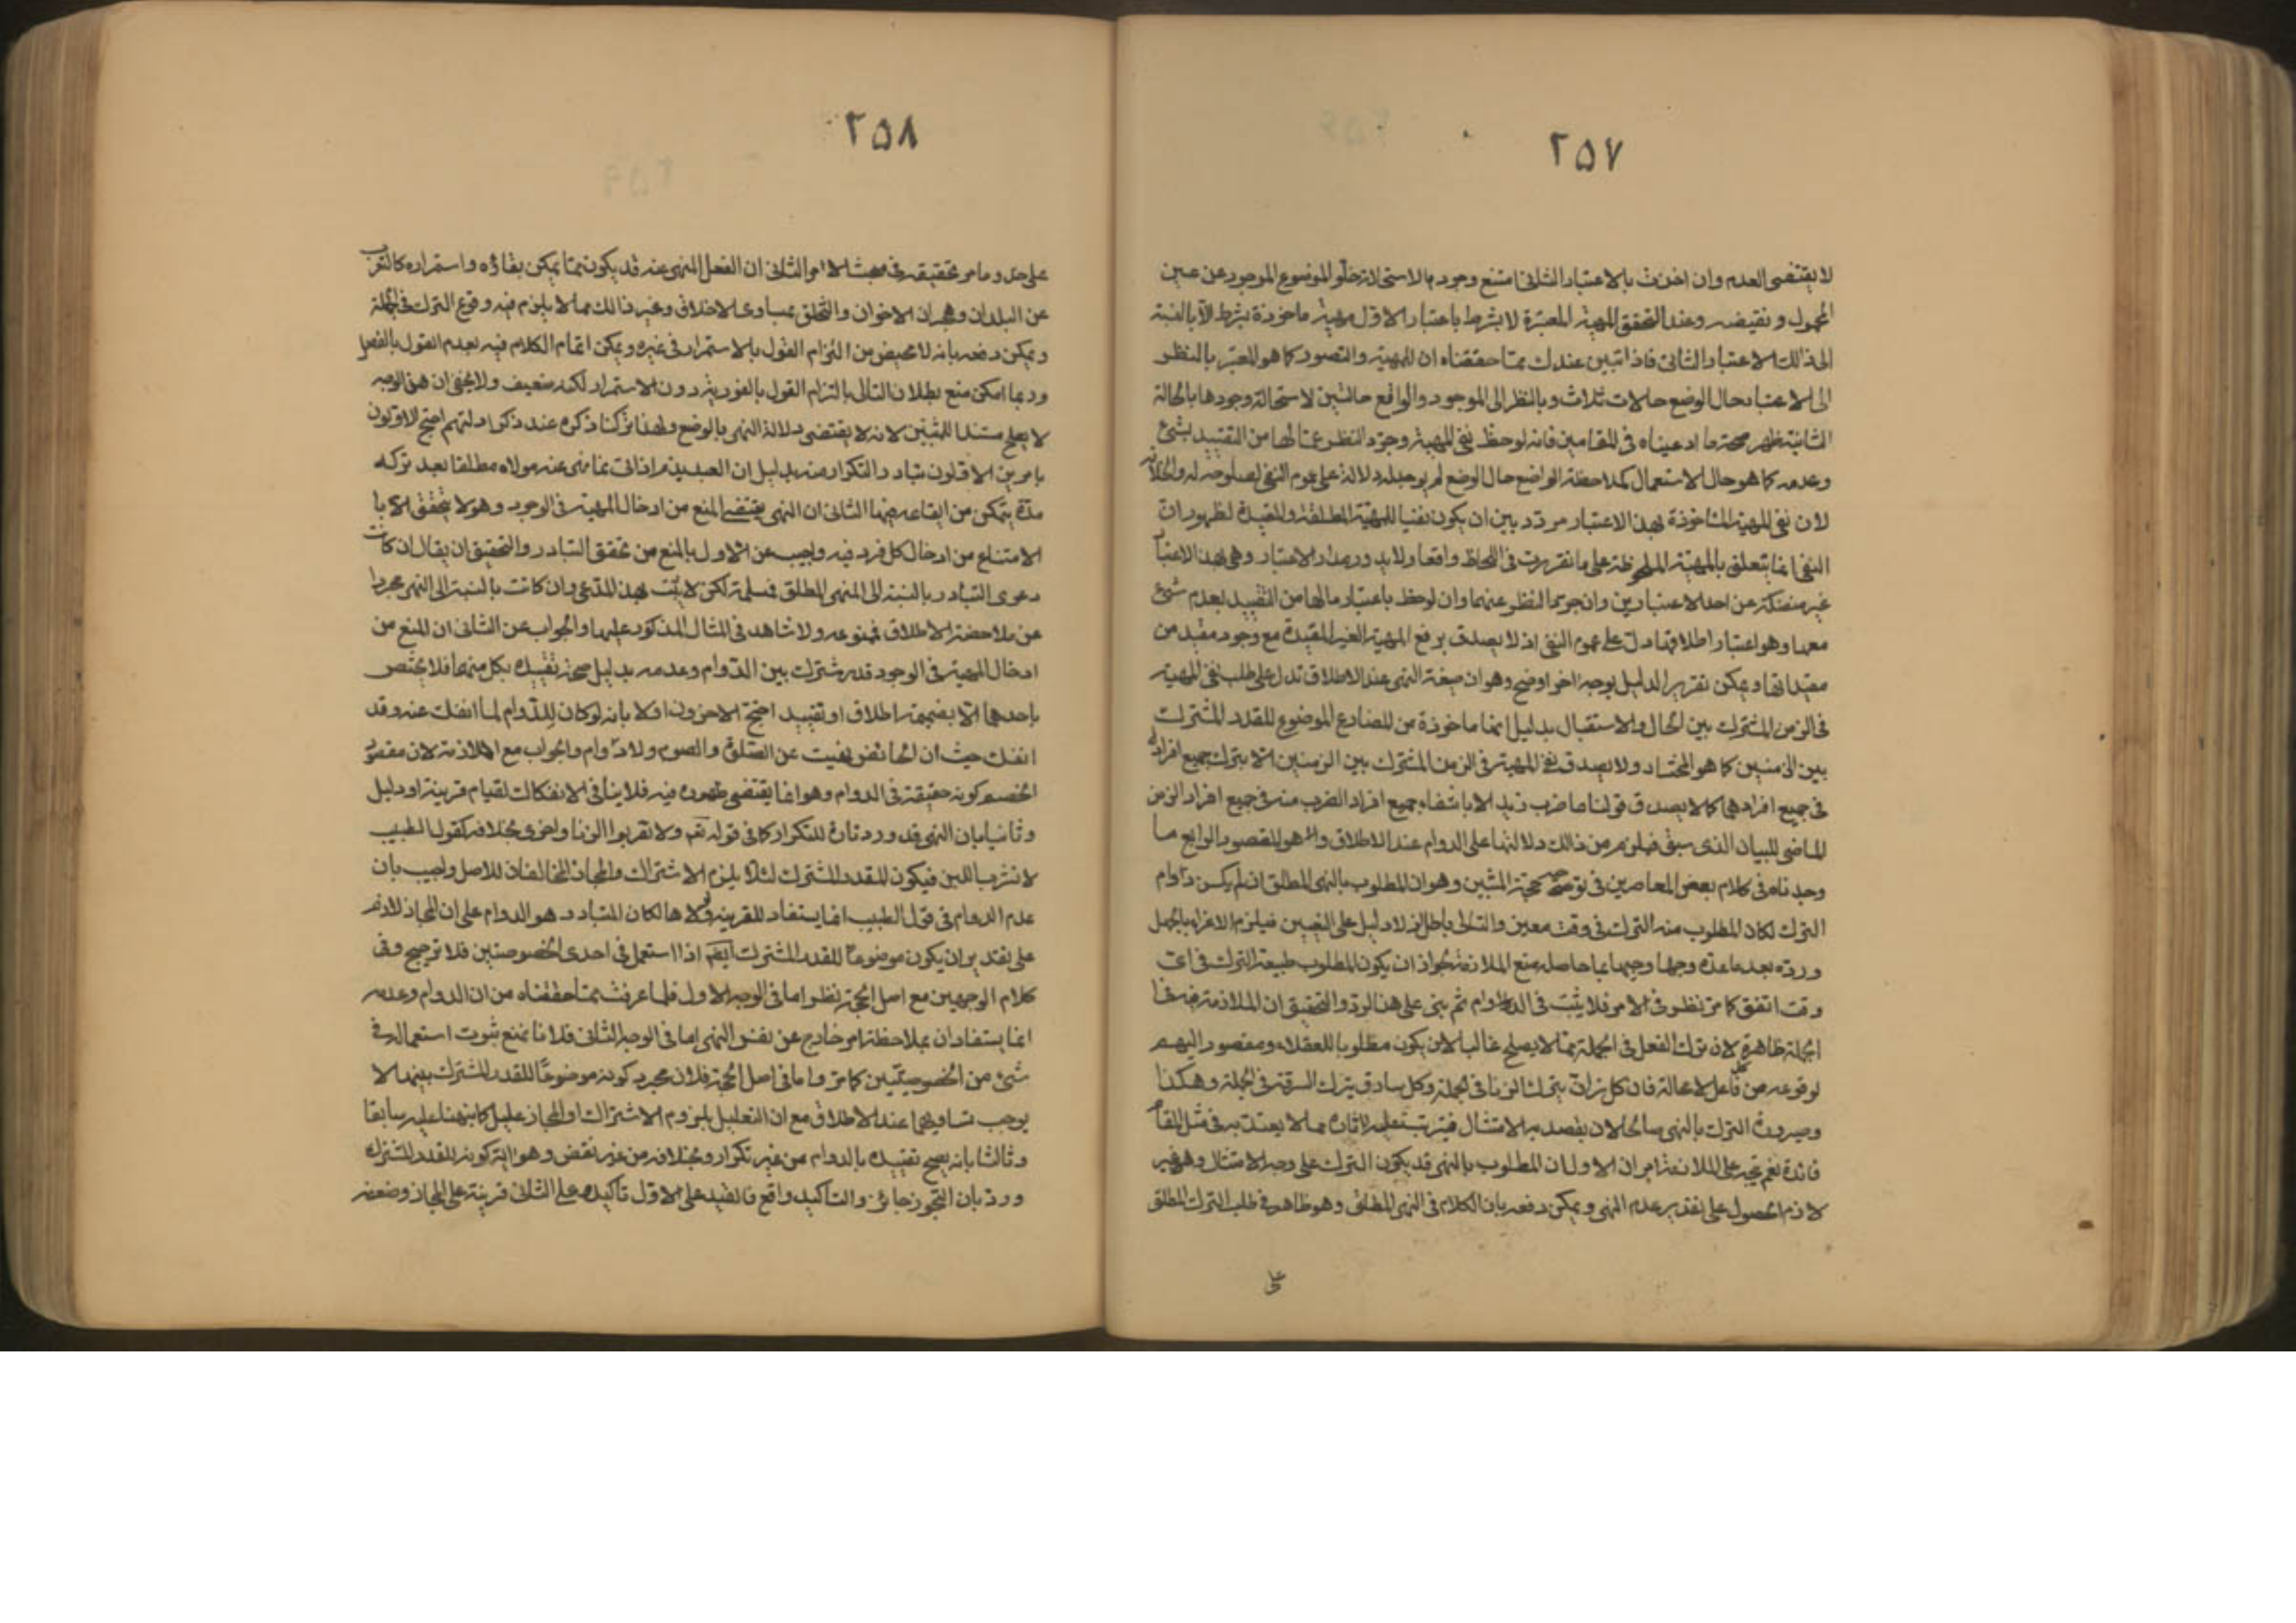 ٢٥٧
لا يقتضى العدم وان اخذت بالاعتبار الثانى امتنع وجوده بالاستحالة خلو الموضوع الموجود عن عين
المحمول ونقيضه وعند التحقق المهية المعتبرة لا بشرط باعتبار الاول مهية ماخوذة بشرط لا بالنسبة
الى ذلك الاعتبار الثانى فاذا تبين عندك مما حققناه ان للمهية والتصور كما هو المعتبر بالنظر
الى الاعتبار حال الوضع حالات ثلاث وبالنظر الى الموجود والواقع حالتين لاستحالة وجودها بالحالة
الثانية ظهر صحة ما ادعيناه فى المقامين فانه لوحظ نفى المهية وجرد النظر عما لها من التقييد بشئ
وعدمه كما هو حال الاستعمال كملاحظة الواضع حال الوضع لم يوجد له دلالة على عموم النفى لصلوحه له ولخلافه
لان نفى المهية الماخوذة بهذا الاعتبار مردد بين ان يكون نفيا للمهية المطلقة والمقيدة لظهور ان
النفى انما يتعلق بالمهية الملحوظة على ما تقررت فى اللحاظ واقعا ولا يدور مدار الاعتبار وهى بهذا الاعتبار
غير منفكة عن احد الاعتبارين وان جرد النظر عنهما وان لوحظ باعتبار مالها من التقييد بعدم شئ
معها وهو اعتبار اطلاقها دل على عموم النفى اذ لا يصدق برفع المهية الغير المقيدة مع وجود مقيد من
مقيداتها ويمكن تقرير الدليل بوجه اخر اوضح وهو ان صيغة النهى عند الاطلاق تدل على طلب نفى المهية
فى الزمن المشترك بين الحال والاستقبال بدليل انها ماخوذة من المضارع الموضوع للقدر المشترك
بين الزمنين كما هو المختار ولا يصدق نفى المهية فى الزمن المشترك بين الزمنين الا بترك جميع افراده
فى جميع افرادها كما لا يصدق قولنا ما ضرب زيد الا بانتفاء جميع افراد الضرب منه فى جميع افراد الزمن
الماضى للبيان الذى سبق فيلزم من ذلك دلالتها على الدوام عند الاطلاق وهو المقصود الرابع ما
وجدناه فى كلام بعض المعاصرين فى توضيح حجة المثبتين وهو ان المطلوب بالنهى المطلق ان لم يكن دوام
الترك لكان المطلوب منه الترك فى وقت معين والتالى باطل اذ لا دليل على التعيين فيلزم الاغراء بالجهل
ورده بعد ما عده وجها وجيها بما حاصله منع الملازمة لجواز ان يكون المطلوب طبيعة الترك فى اى
وقت اتفق كما مر نظيره فى الامر فلا يثبت فى الدوام ثم بنى على هذا الرد والتحقيق ان الملازمة فيه فى
الجملة ظاهرة لان ترك الفعل فى الجملة مما لا يصلح غالبا لان يكون مطلوبا للعقلاء ومقصود اليهم
لوقوعه من كل فاعل لا محالة فان كل زان يترك الزنا فى الجملة وكل سارق يترك السرقة فى الجملة وهكذا
وصيرورة الترك بالنهى صالحا لان يقصد به الامتثال فيترتب عليه آثاره مما لا يعتد به فى مثل المقام
فائدة نعم يتجه على الملازمة امران الاول ان المطلوب بالنهى قد يكون الترك على وجه الامتثال وهو غير
لازم الحصول على تقدير عدم النهى ويمكن دفعه بان الكلام فى النهى المطلق وهو ظاهر فى طلب الترك المطلق
على
٢٥٨
على حد وما مر تحقيقه فى مبحث الامر الثانى ان الفعل المنهى عنه قد يكون مما يمكن بقاؤه واستمراره كالتغرب
عن البلدان وهجران الاخوان والتخلق بمساوى الاخلاق وغير ذلك مما لا يلزم فيه وقوع الترك فى الجملة
ويمكن دفعه بانه لا محيص من التزام القول بالاستمرار فى غيره ويمكن اتمام الكلام فيه بعدم القول بالفصل
وربما امكن منع بطلان التالى بالتزام القول بالفور يترد دون الاستمرار لكنه ضعيف ولا يخفى ان هذا الوجه
لا يصلح مستندا للمثبتين لانه لا يقتضى دلالة النهى بالوضع ولهذا تركنا ذكره عند ذكر ادلتهم احتج الاولون
بامرين الاول ان تبادر التكرار منه بدليل ان العبد يذم اذا اتى بما نهى عنه مولاه مطلقا بعد تركه
مدة يتمكن من ايقاعه فيها الثانى ان النهى يقتضى المنع من ادخال المهية فى الوجود وهو لا يتحقق الا با
الامتناع من ادخال كل فرد فيه واجيب عن الاول بالمنع من تحقق التبادر والتحقيق ان يقال ان كانت
دعوى التبادر بالنسبة الى النهى المطلق فمسلمة لكن لا يثبت بهذا المدعى وان كانت بالنسبة الى النهى مجردا
عن ملاحظة الاطلاق فممنوعة ولا شاهد فى المثال المذكور عليها والجواب عن الثانى ان المنع من
ادخال المهية فى الوجود قدر مشترك بين الدوام وعدمه بدليل صحة تقييده بكل منهما فلا يختص
باحدهما الا بضميمة اطلاق او تقييد احتج الاخرون اولا بانه لو كان للدوام لما انفك عنه وقد
انفك حيث ان الحائض نهيت عن الصلوة والصوم ولا دوام والجواب مع الملازمة لان مقصود
الخصم كونه حقيقة فى الدوام وهو انما يقتضى ظهوره فيه فلا ينافى الانفكاك لقيام قرينة او دليل
وثانيا بان النهى قد ورد تارة للتكرار كما فى قوله تعم ولا تقربوا الزنا واخرى بخلافه كقول الطبيب
لا تشرب اللبن فيكون للقدر المشترك لئلا يلزم الاشتراك والمجاز المخالفان للاصل واجيب بان
عدم الدوام فى قول الطبيب انما يستفاد للقرينة ولولاها لكان المتبادر هو الدوام على ان المجاز لازم
على تقدير ان يكون موضوعا للقدر المشترك ايضم اذا استعمل فى احدى الخصوصيتين فلا ترجيح وفى
كلام الوجهين مع اصل الحجة نظر اما فى الوجه الاول فلما عرفت مما حققناه من ان الدوام وعدمه
انما يستفادان بملاحظة امر خارج عن نفس النهى اما فى الوجه الثانى فلانا نمنع ثبوت استعماله فى
شئ من الخصوصيتين كما مر واما فى اصل الحجة فلان مجرد كونه موضوعا للقدر المشترك بينهما لا
يوجب تساويهما عند الاطلاق مع ان التعليل بلزوم الاشتراك او المجاز عليل كما نبهنا عليه سابقا
وثالثا بانه يصح تقييده بالدوام من غير تكرار وبخلافه من غير نقض وهو اية كونه للقدر المشترك
ورد بان التجوز جائز والتاكيد واقع فالقيد على الاول تاكيد وعلى الثانى قرينة على المجاز وضعفه